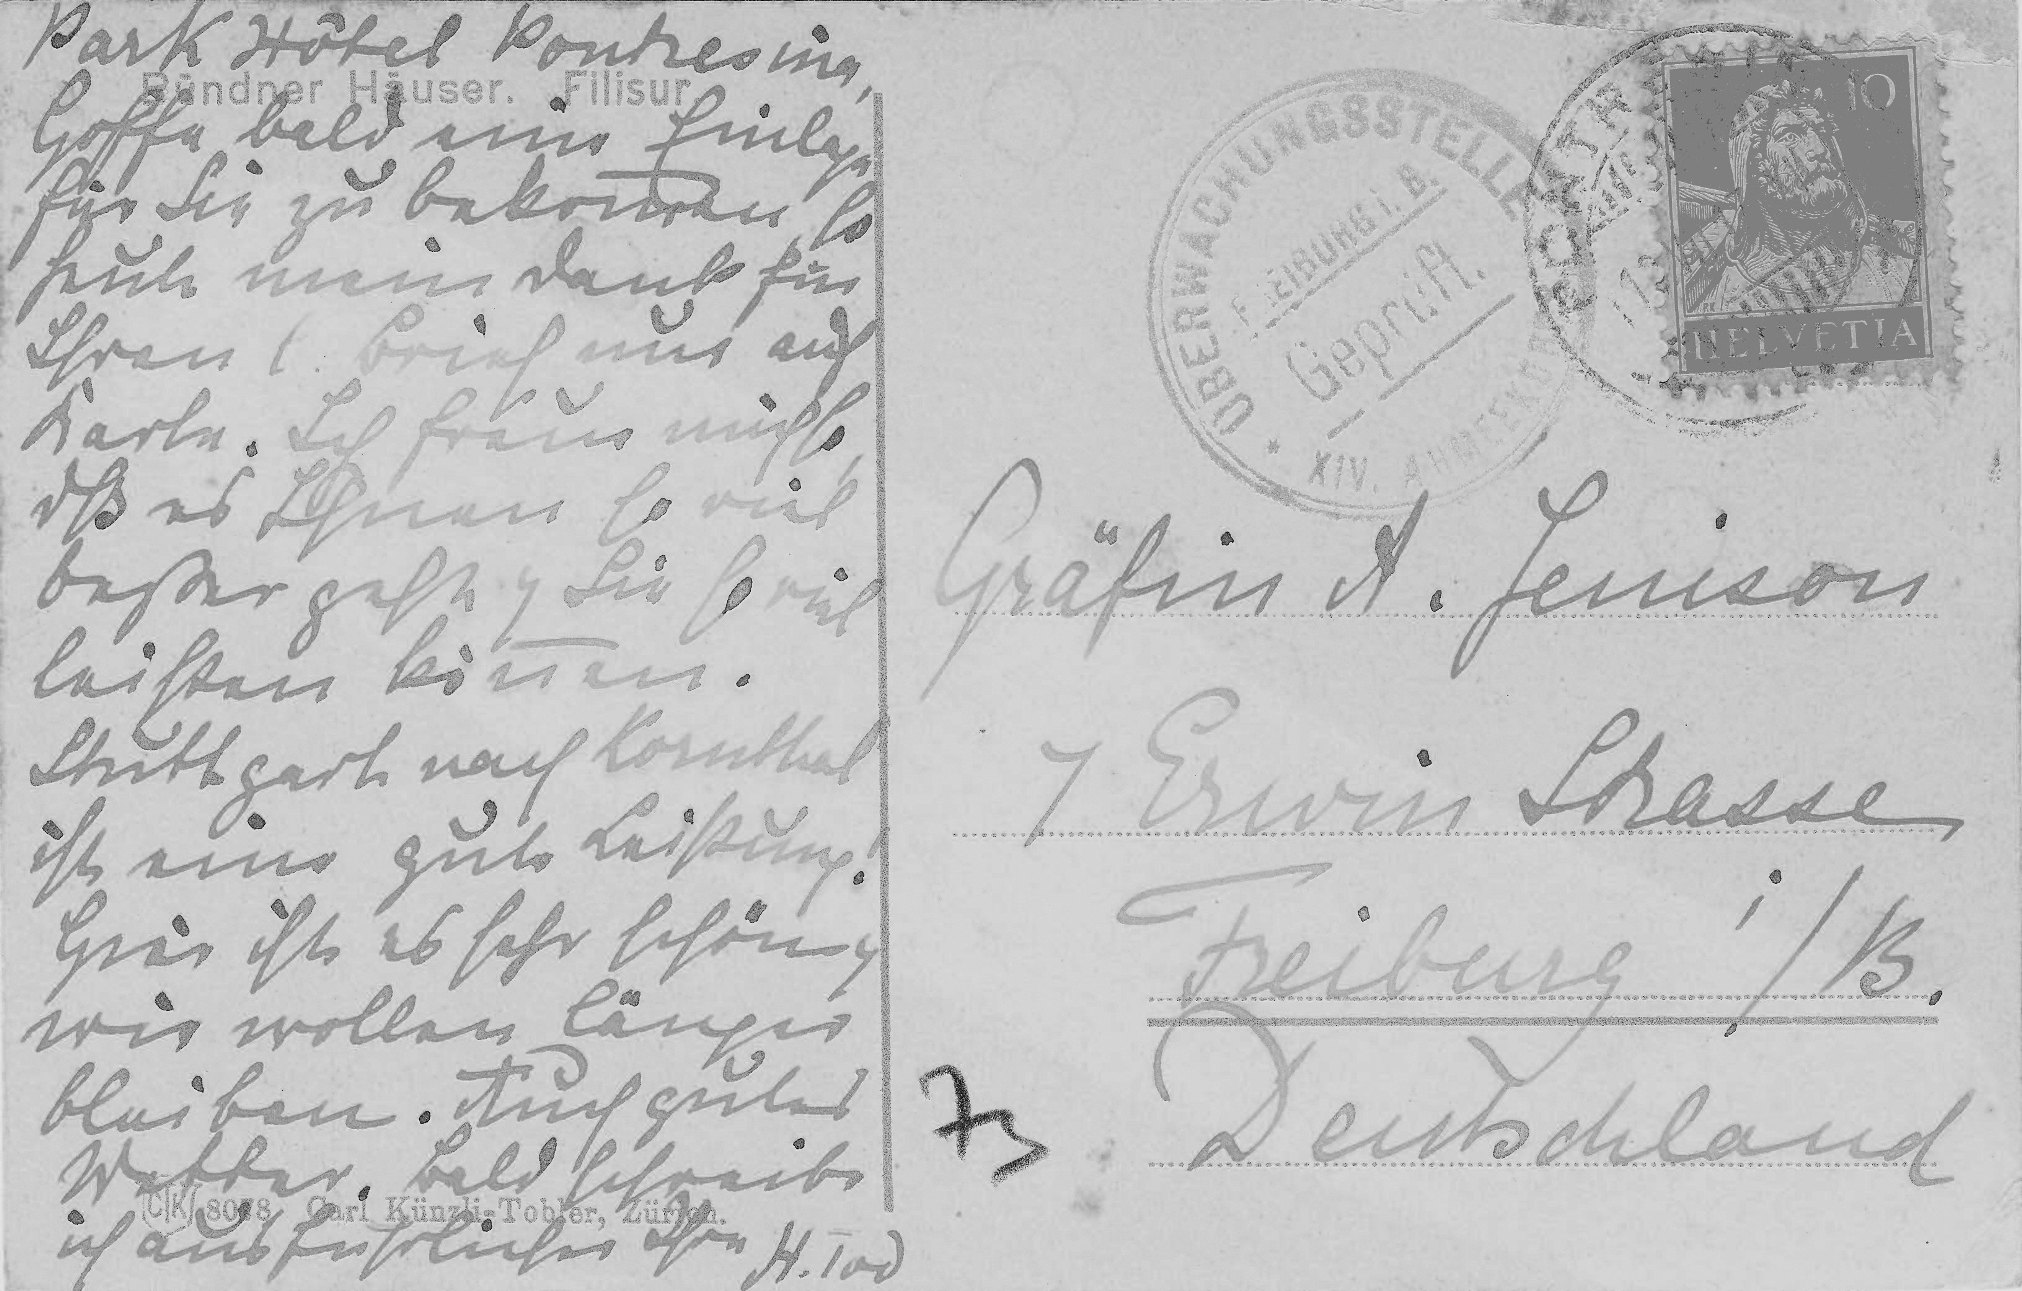 Park Hôtel Pontresina,
Bündner Häuser. Filisur
Hoffe bald eine Einlage
für Sie zu bekommen, so
heute mein Dank für
Ihren l. Brief nur auf
Karte. Ich freue mich so,
dß es Ihnen so viel
besser geht & Sie so viel
leisten können.
Stuttgart nach Kornthal
ist eine gute Leistung!
Hier ist es sehr schön &
wir wollen länger
bleiben. Auch gutes
Wetter. Bald schreibe
CK 8078 Carl Künzli-Tobler, Zürich.
ich ausführlicher Ihre H.
ÜBERWACHUNGSSTELLE
FREIBURG i. B.
Geprüft.
XIV. ARMEEKO
10
HELVETIA
Gräfin A. Jenison
7 Erwin Strasse
Freiburg i/B.
Deutschland
73